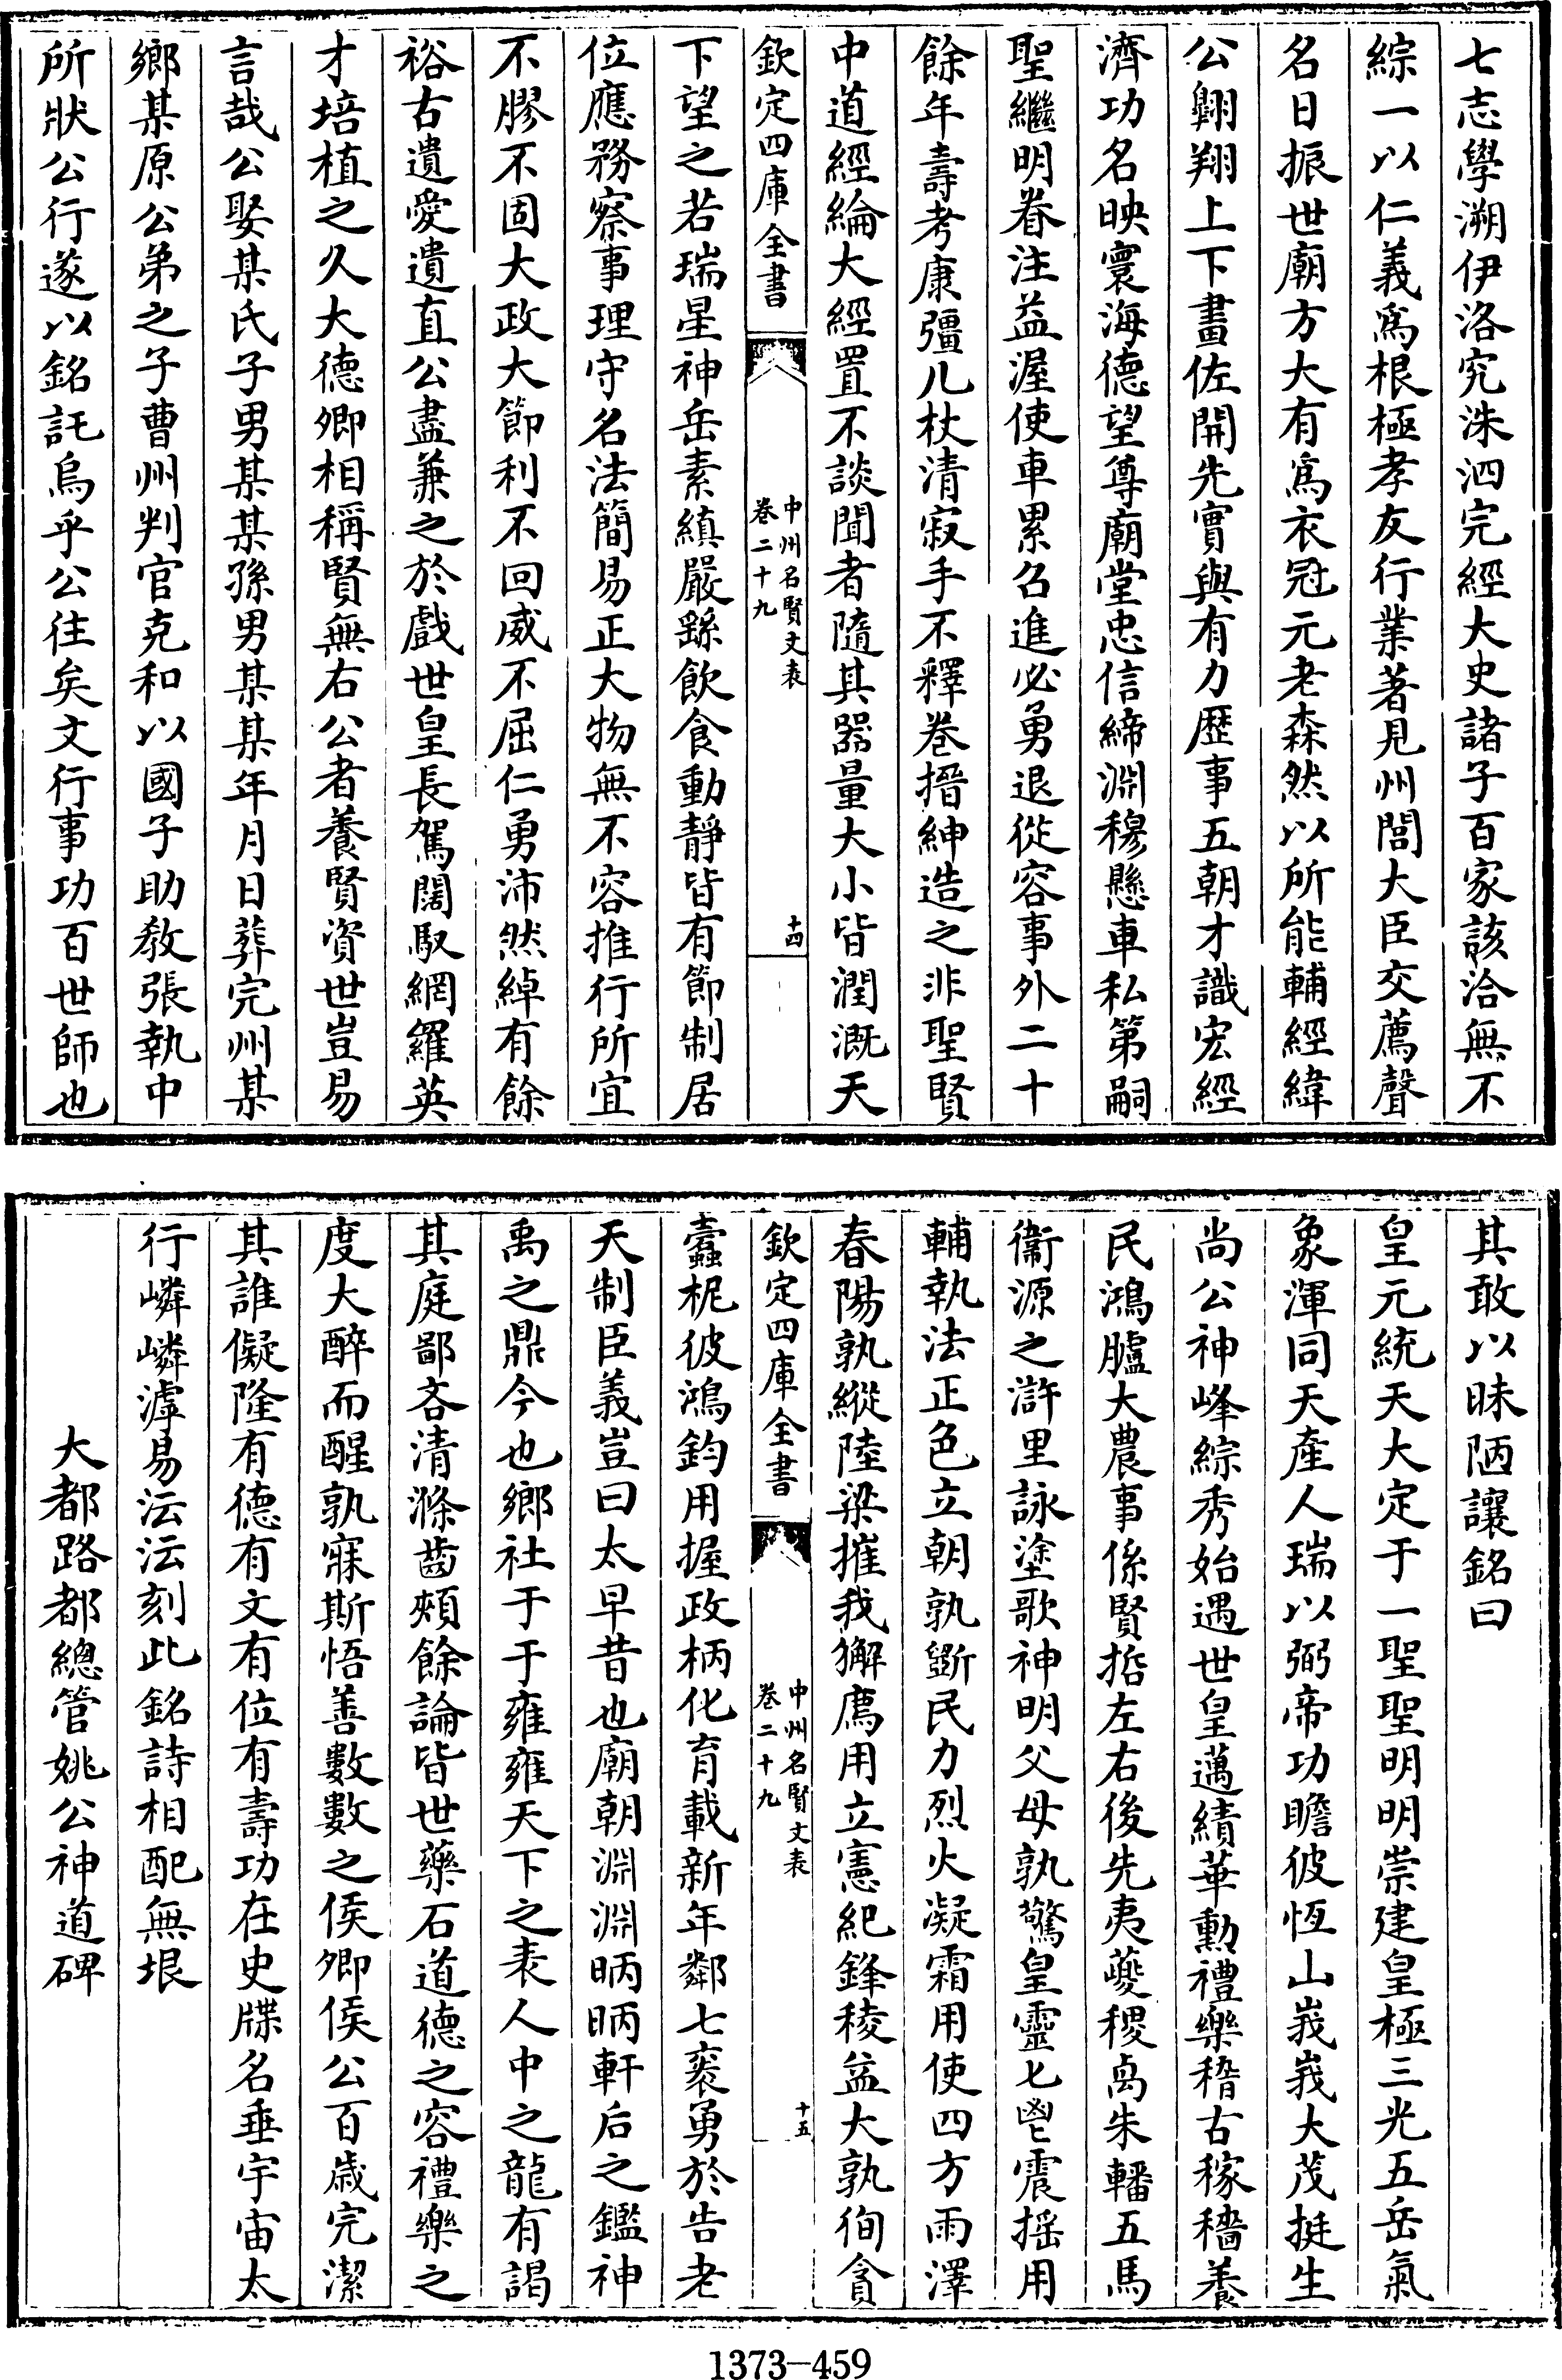 七志學溯伊洛究洙泗完經大史諸子百家該洽無不
綜一以仁義爲根極孝友行業著見州閭大臣交薦聲
名日振世廟方大有爲衣冠元老森然以所能輔經緯
公翺翔上下畫佐開先實與有力歷事五朝才識宏經
濟功名映寰海德望尊廟堂忠信締淵穆懸車私第嗣
聖繼明眷注益渥使車累召進必勇退從容事外二十
餘年壽考康彊几杖清寂手不釋卷搢紳造之非聖賢
中道經綸大經置不談聞者隨其器量大小皆潤溉天
欽定四庫全書
中州名賢文表
卷二十九
十四
下望之若瑞星神岳素縝嚴繇飲食動靜皆有節制居
位應務察事理守名法簡易正大物無不容推行所宜
不膠不固大政大節利不回威不屈仁勇沛然綽有餘
裕古遺愛遺直公盡兼之於戲世皇長駕闊馭網羅英
才培植之久大德卿相稱賢無右公者養賢資世豈易
言哉公娶某氏子男某某孫男某某年月日葬完州某
鄉某原公弟之子曹州判官克和以國子助敎張執中
所狀公行遂以銘託烏乎公往矣文行事功百世師也
其敢以昧陋讓銘曰
皇元統天大定于一聖聖明明崇建皇極三光五岳氣
象渾同天產人瑞以弼帝功瞻彼恆山峩峩大茂挺生
尚公神峰綜秀始遇世皇邁績華勳禮樂稽古稼穡養
民鴻臚大農事係賢指左右後先夷夔稷卨朱轓五馬
衞源之滸里詠塗歌神明父母孰驚皇靈匕鬯震搖用
輔執法正色立朝孰斲民力烈火凝霜用使四方雨澤
春陽孰縱陸梁摧我獬廌用立憲紀鋒稜益大孰徇貪
欽定四庫全書
中州名賢文表
卷二十九
十五
蠹柅彼鴻鈞用握政柄化育載新年鄰七袠勇於告老
天制臣義豈曰太早昔也廟朝淵淵昞昞軒后之鑑神
禹之鼎今也鄉社于于雍雍天下之表人中之龍有謁
其庭鄙吝清滌齒頰餘論皆世藥石道德之容禮樂之
度大醉而醒孰寐斯悟善數數之侯卿侯公百歲完潔
其誰儗隆有德有文有位有壽功在史牒名垂宇宙太
行嶙嶙滹易沄沄刻此銘詩相配無垠
大都路都總管姚公神道碑
1373—459